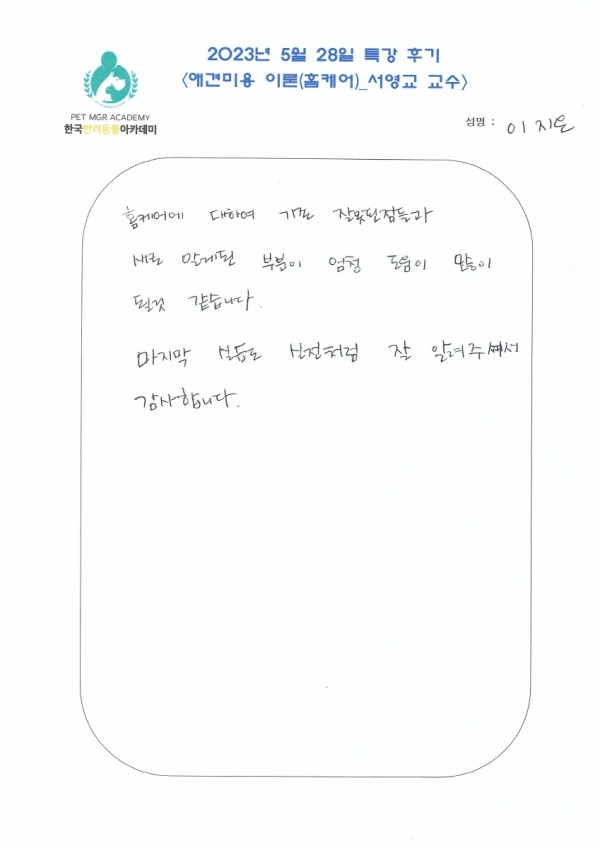 2023년 5월 28일 특강 후기
<애견미용 이론(홈케어)_서영교 교수>
PET MGR ACADEMY
한국반려동물아카데미
성명 : 이지은
홈케어에 대하여 기존 잘못된점들과
새로 알게된 부분이 엄청 도움이 많이
될것 같습니다.
마지막 실습도 실전처럼 잘 알려주셔서
감사합니다.